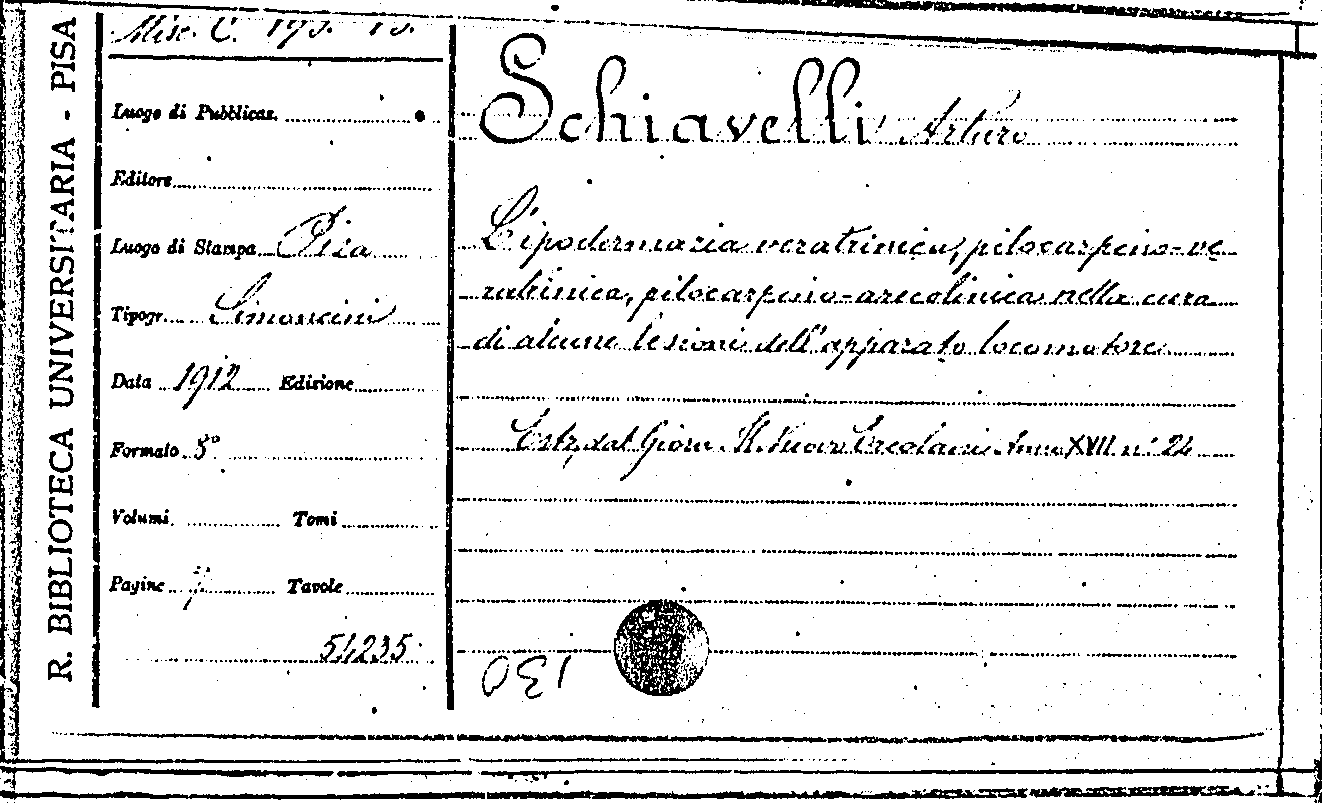 R. BIBLIOTECA UNIVERSITARIA - PISA
Misc. C.
Luogo di Pubblicaz.
Editore
Luogo di Stampa Pisa
Tipogr. Simoncini
Data 1912 Edizione
Formato 8°
Volumi Tomi
Pagine 7 Tavole
54235
Schiavelli Arturo
L'ipodermazia veratrinica, pilocarpino-ve
ratrinica, pilocarpino-arecolinica nella cura
di alcune lesioni dell'apparato locomotore
Estr. dal Giorn. Il Nuovo Ercolani Anno XVII n° 24
130